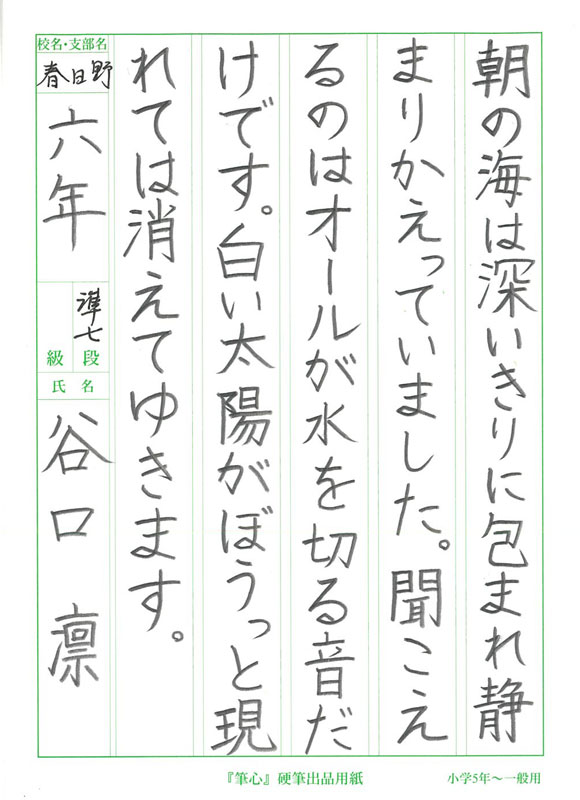 朝の海は深いきりに包まれ静
まりかえっていました。聞こえ
るのはオールが水を切る音だ
けです。白い太陽がぼうっと現
れては消えてゆきます。
校名・支部名
春日野
六年
準七
級 段
氏名
谷口 凛
『筆心』硬筆出品用紙
小学5年〜一般用